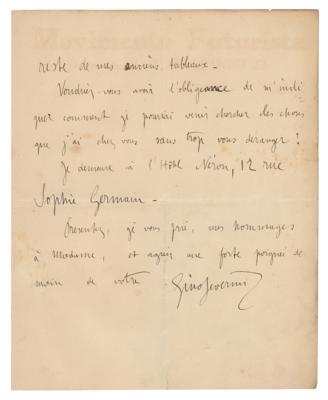 Movimento Futurista
reste de mes anciens tableaux_
Voudriez-vous avoir l'obligeance de m'indi
quer comment je pourrai venir chercher des choses
que j'ai chez vous sans trop vous déranger?
Je demeure à l'Hôtel Néron, 12 rue
Sophie Germain_
Présentez, je vous prie, mes hommages
à Madame, et agréez une forte poignée de
main de votre Gino Severini